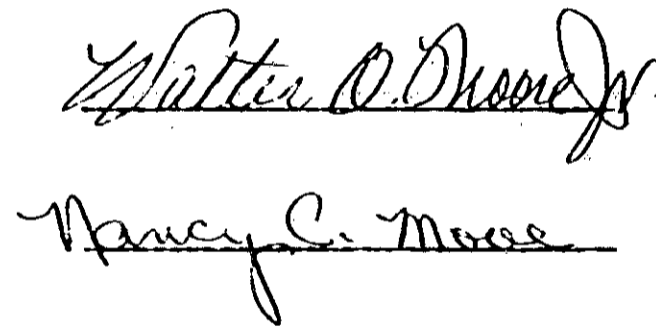 Walter O. Moore Jr.
Nancy C. Moore